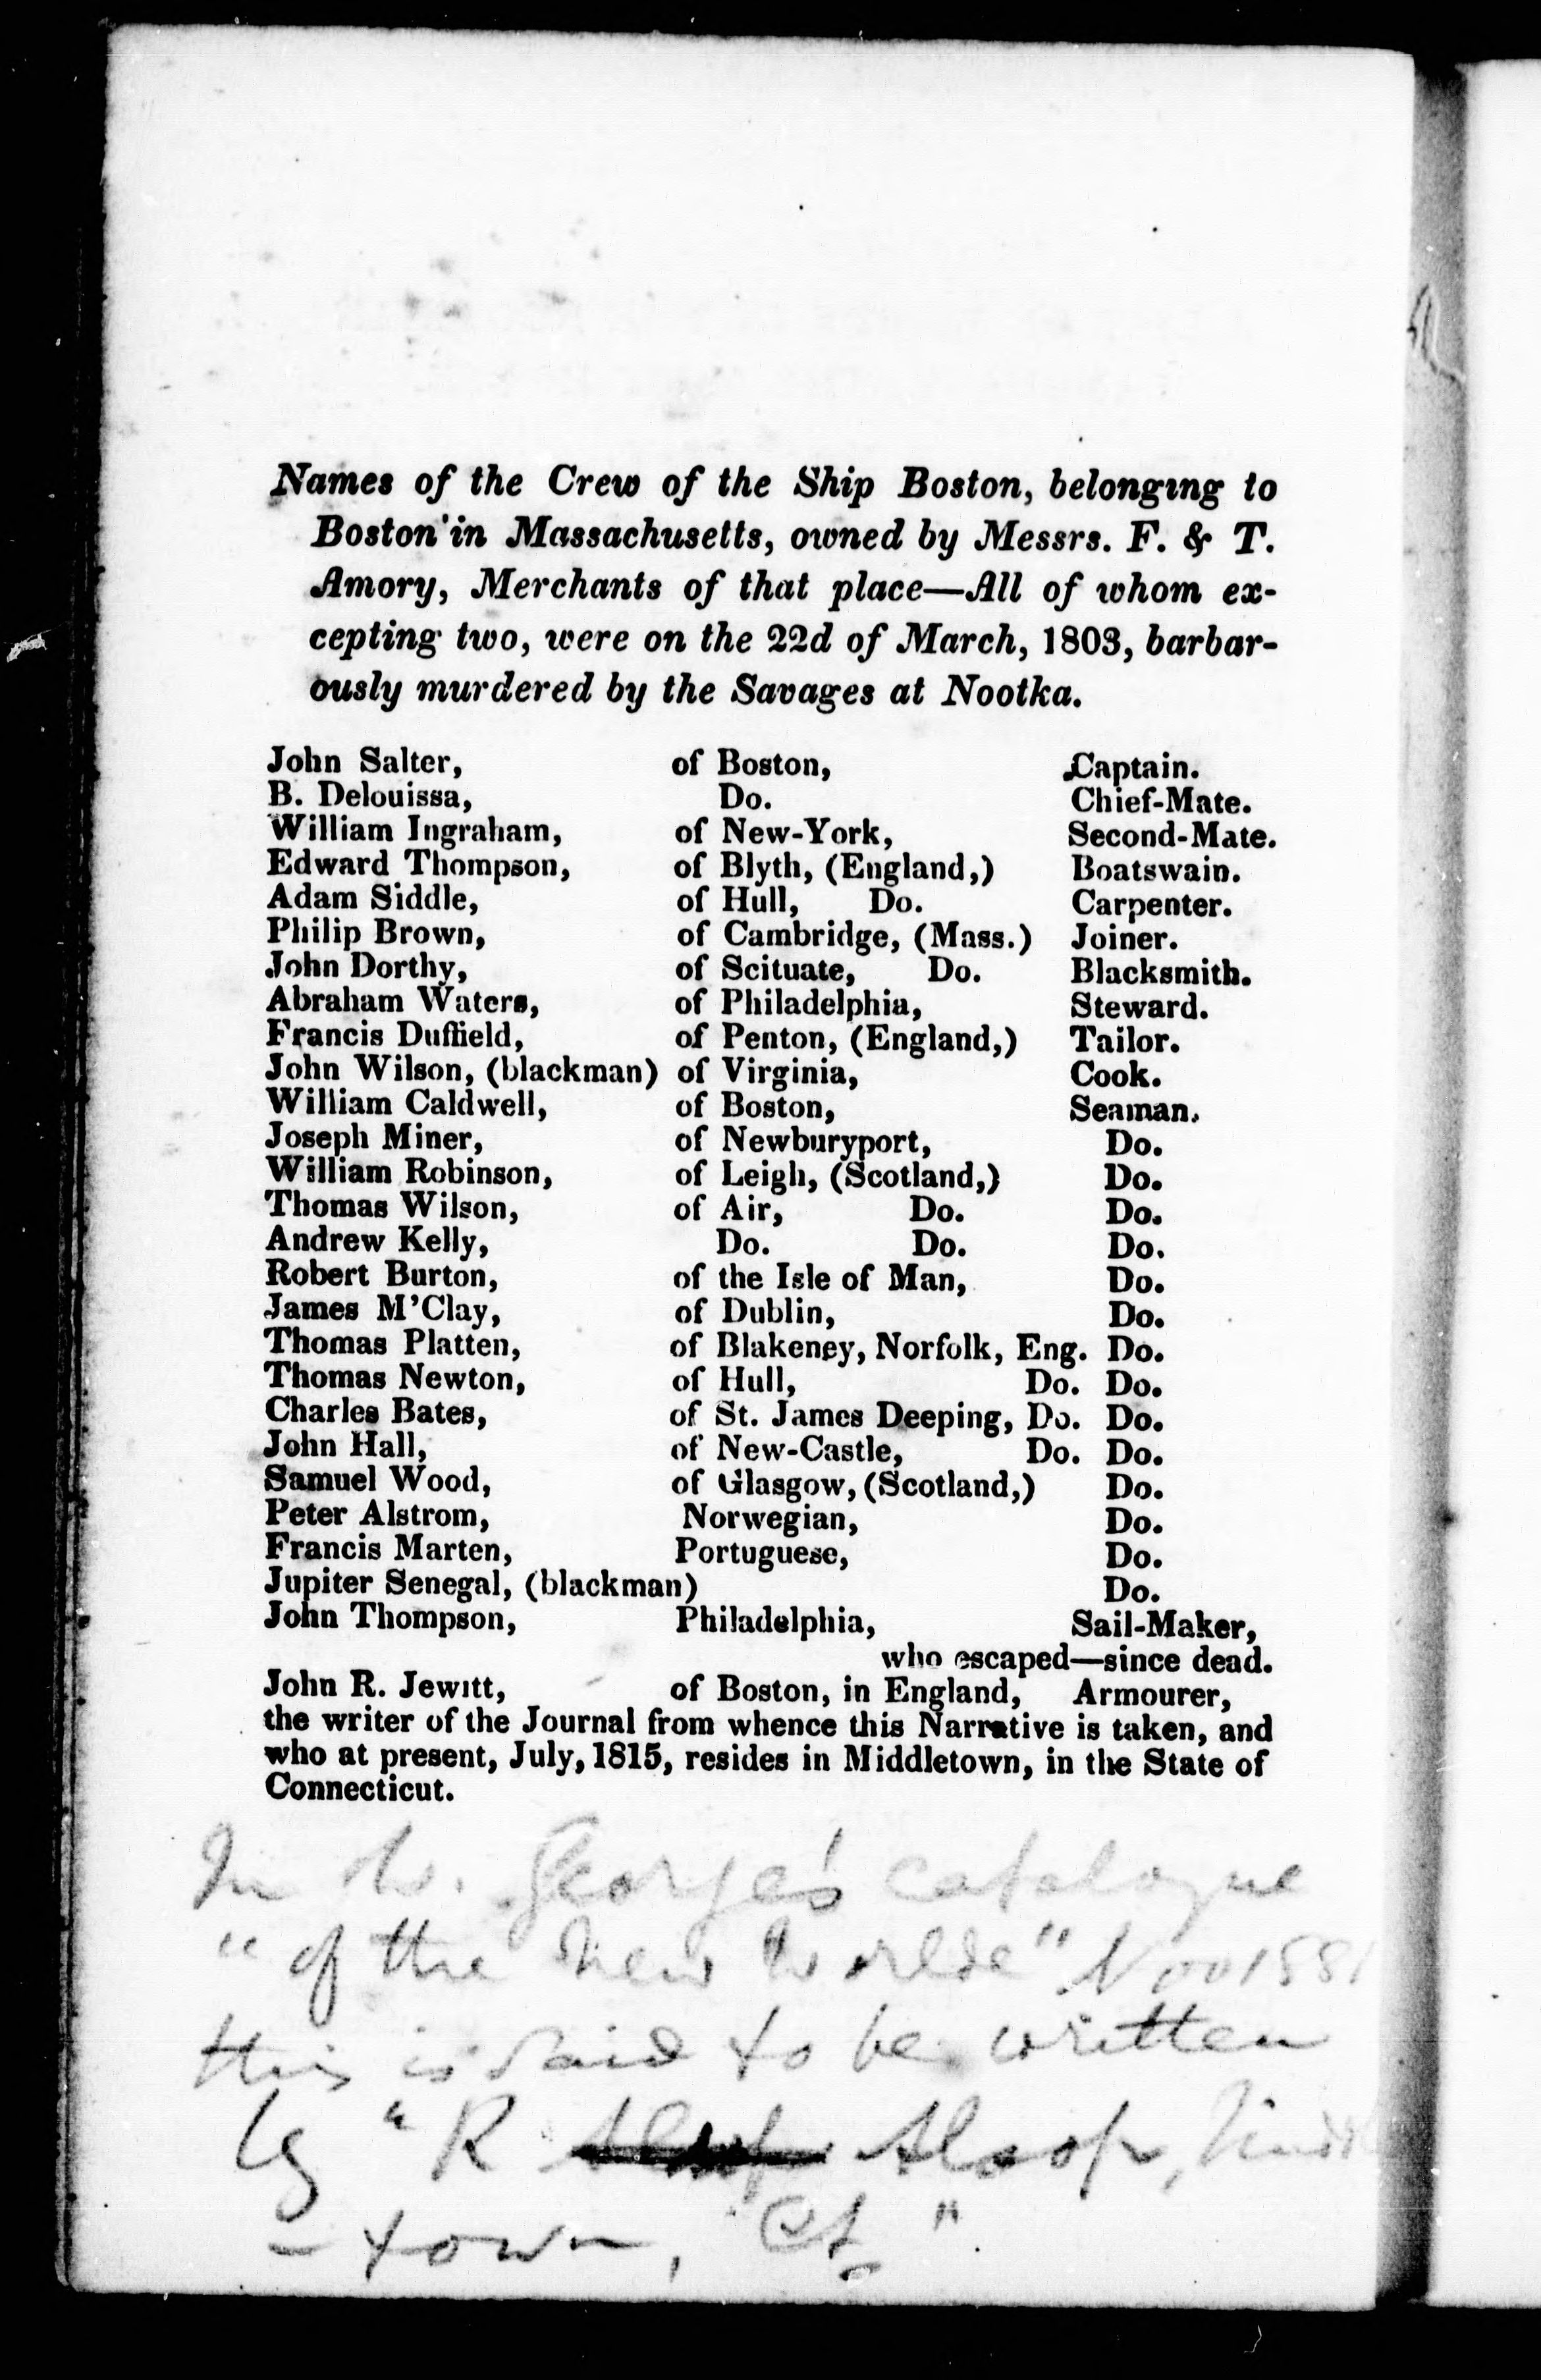 Names of the Crew of the Ship Boston, belonging to
Boston in Massachusetts, owned by Messrs. F. & T.
Amory, Merchants of that place—All of whom ex-
cepting two, were on the 22d of March, 1803, barbar-
ously murdered by the Savages at Nootka.
John Salter, of Boston, Captain.
B. Delouissa, Do. Chief-Mate.
William Ingraham, of New-York, Second-Mate.
Edward Thompson, of Blyth, (England,) Boatswain.
Adam Siddle, of Hull, Do. Carpenter.
Philip Brown, of Cambridge, (Mass.) Joiner.
John Dorthy, of Scituate, Do. Blacksmith.
Abraham Waters, of Philadelphia, Steward.
Francis Duffield, of Penton, (England,) Tailor.
John Wilson, (blackman) of Virginia, Cook.
William Caldwell, of Boston, Seaman.
Joseph Miner, of Newburyport, Do.
William Robinson, of Leigh, (Scotland,) Do.
Thomas Wilson, of Air, Do. Do.
Andrew Kelly, Do. Do. Do.
Robert Burton, of the Isle of Man, Do.
James M'Clay, of Dublin, Do.
Thomas Platten, of Blakeney, Norfolk, Eng. Do.
Thomas Newton, of Hull, Do. Do.
Charles Bates, of St. James Deeping, Do. Do.
John Hall, of New-Castle, Do. Do.
Samuel Wood, of Glasgow, (Scotland,) Do.
Peter Alstrom, Norwegian, Do.
Francis Marten, Portuguese, Do.
Jupiter Senegal, (blackman) Do.
John Thompson, Philadelphia, Sail-Maker,
who escaped—since dead.
John R. Jewitt, of Boston, in England, Armourer,
the writer of the Journal from whence this Narrative is taken, and
who at present, July, 1815, resides in Middletown, in the State of
Connecticut.
In George's catalogue
"of the New Worlde"
this is said to be written
by "R Alsop,
-town, Ct"